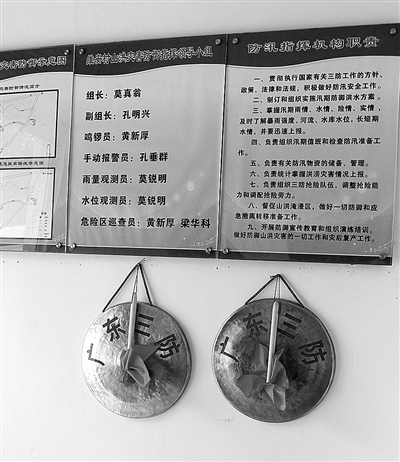 灾害防御示意图
山洪灾害防御指挥领导小组
组长：莫真翁
副组长：孔明兴
鸣锣员：黄新厚
手动报警员：孔垂群
雨量观测员：莫锐明
水位观测员：莫锐明
危险区巡查员：黄新厚 梁华科
防汛指挥机构职责
一、贯彻执行国家有关三防工作的方针、
政策、法律和法规，积极做好防汛安全工作。
二、制订和组织实施汛期防御洪水方案。
三、掌握汛期雨情、水情、险情、实情，
及时了解暴雨强度、河流、水库水位，长短期
水情，并要迅速上报。
四、负责组织汛期值班和检查防汛准备工
作。
五、负责有关防汛物资的储备、管理。
六、负责统计掌握洪涝灾害情况上报。
七、负责组织三防抢险队伍，调整抢险能
力和调配抢险劳力。
八、督促山洪淹浸区，做好一切防御和应
急撤离转移准备工作。
九、开展防御宣传教育和组织演练培训，
做好防御山洪灾害的一切工作和灾后复产工作。
广东三防
广东三防